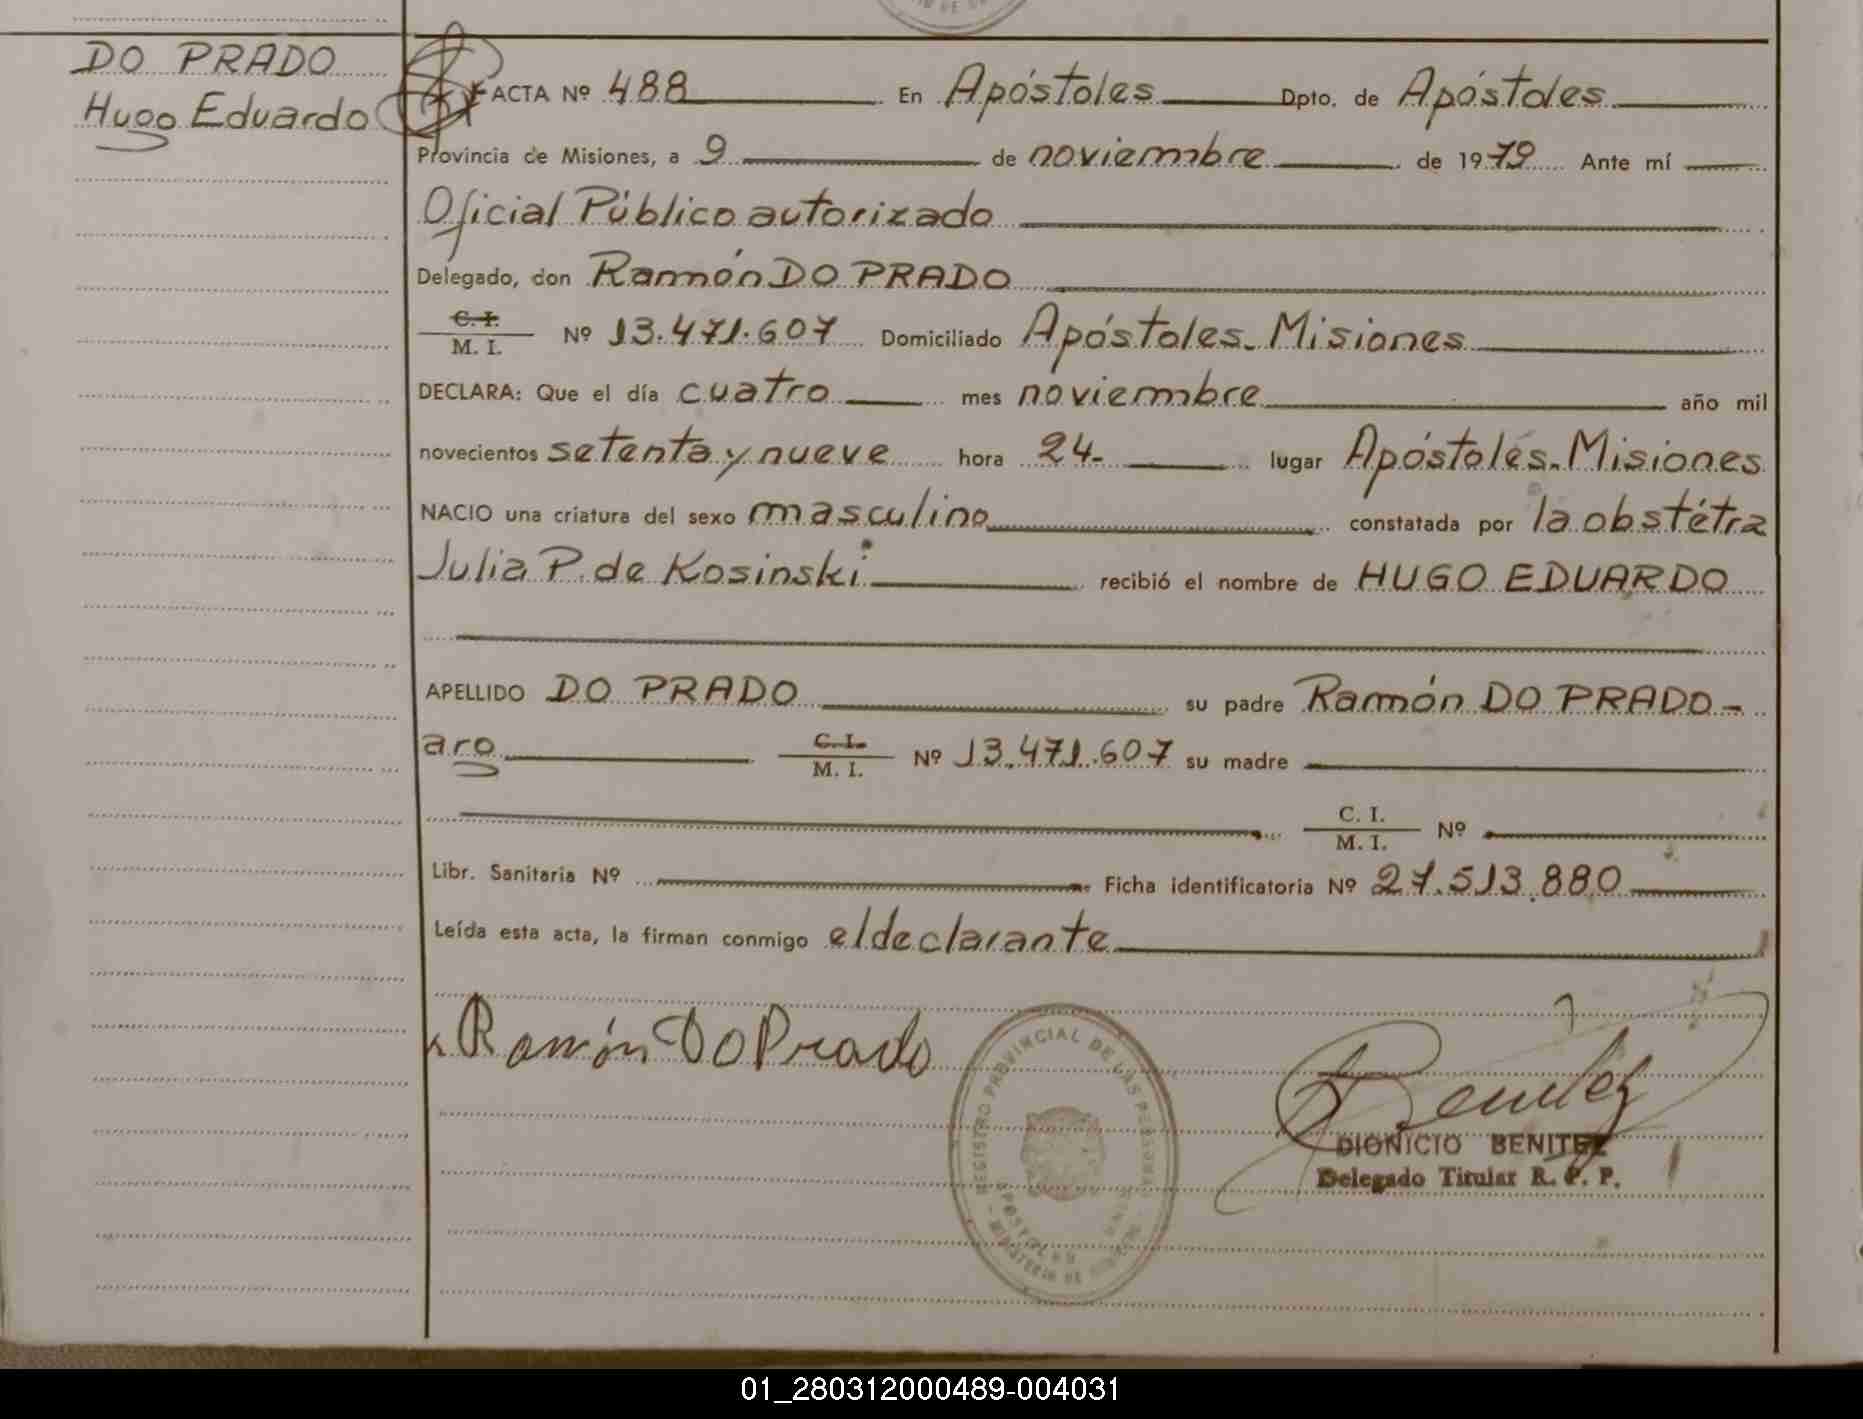 DO PRADO
Hugo Eduardo
ACTA Nº 488 En Apóstoles Dpto. de Apóstoles
Provincia de Misiones, a 9 de noviembre de 1979 Ante mí
Oficial Público autorizado
Delegado, don Ramón DO PRADO
C. I.
M. I. Nº 13.471.607 Domiciliado Apóstoles. Misiones
DECLARA: Que el día cuatro mes noviembre año mil
novecientos setenta y nueve hora 24- lugar Apóstoles. Misiones
NACIO una criatura del sexo masculino constatada por la obstétra
Julia P. de Kosinski recibió el nombre de HUGO EDUARDO
APELLIDO DO PRADO su padre Ramón DO PRADO-
aro C. I. M. I. Nº 13.471.607 su madre
C. I.
M. I. Nº
Libr. Sanitaria Nº Ficha identificatoria Nº 27.513.880
Leída esta acta, la firman conmigo el declarante
Ramón DO Prado
REGISTRO PROVINCIAL DE LAS PERSONAS
APOSTOLES
MINISTERIO DE
Benitez
DIONICIO BENITEZ
Delegado Titular R. P. P.
01_280312000489-004031